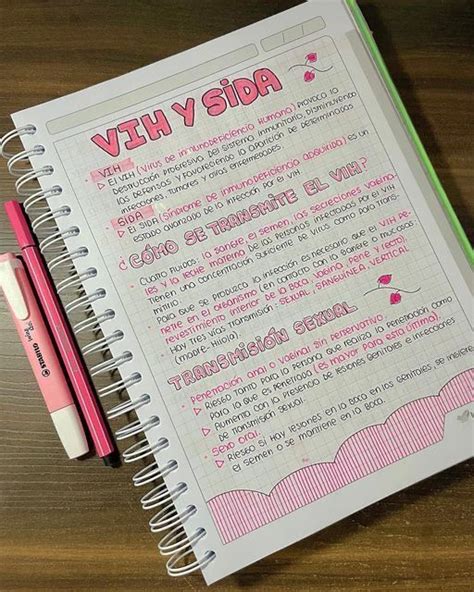 VIH Y SIDA
VIH
▷ El VIH (Virus de inmunodeficiencia humana) provoca la
destrucción progresiva del sistema inmunitario, disminuyendo
las defensas y favoreciendo la aparición de determinadas
infecciones, tumores y otras enfermedades.
SIDA
▷ El SIDA (Síndrome de inmunodeficiencia adquirida) es un
estado avanzado de la infección por el VIH.
¿CÓMO SE TRANSMITE EL VIH?
• Cuatro fluidos: la sangre, el semen, las secreciones vagina-
les y la leche materna de las personas infectadas por el VIH
tienen una concentración suficiente de virus como para trans-
mitirlo
• Para que se produzca la infección es necesario que el VIH pe-
netre en el organismo (en contacto con la sangre o mucosas:
revestimiento interior de la boca, vagina, pene, y recto).
• Hay tres vías transmisión: SEXUAL, SANGUÍNEA, VERTICAL.
(madre-hijo/a).
TRANSMISIÓN SEXUAL
• Penetración anal o vaginal sin preservativo.
▷ Riesgo tanto para la persona que realiza la penetración como
para la que es penetrada (es mayor para esta última).
▷ Aumenta con la presencia de lesiones genitales e infecciones
de transmisión sexual.
• Sexo oral.
▷ Riesgo si hay lesiones en la boca o en los genitales, se
el semen o se mantiene en la boca.
STABILO
swing cool